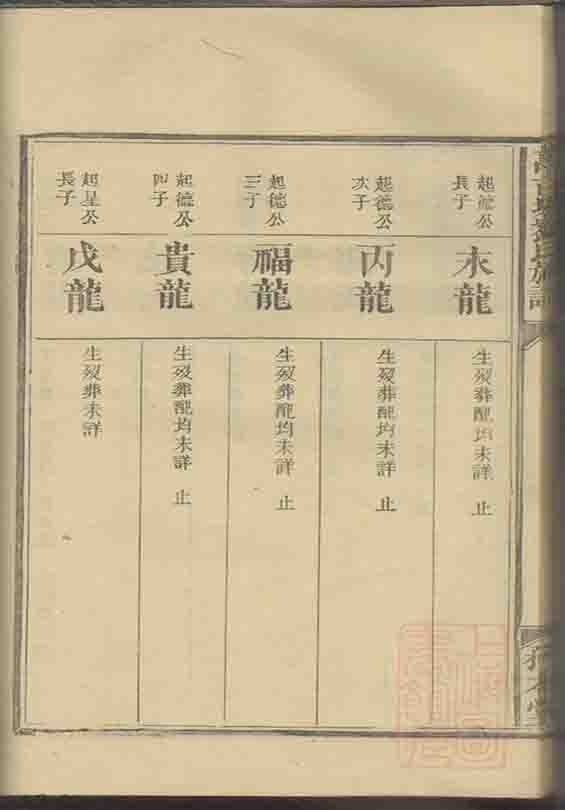 起德公
長子
水龍
生歿葬配均未詳 止
起德公
次子
丙龍
生歿葬配均未詳 止
起德公
三子
福龍
生歿葬配均未詳 止
起德公
四子
貴龍
生歿葬配均未詳 止
起星公
長子
戊龍
生歿葬未詳